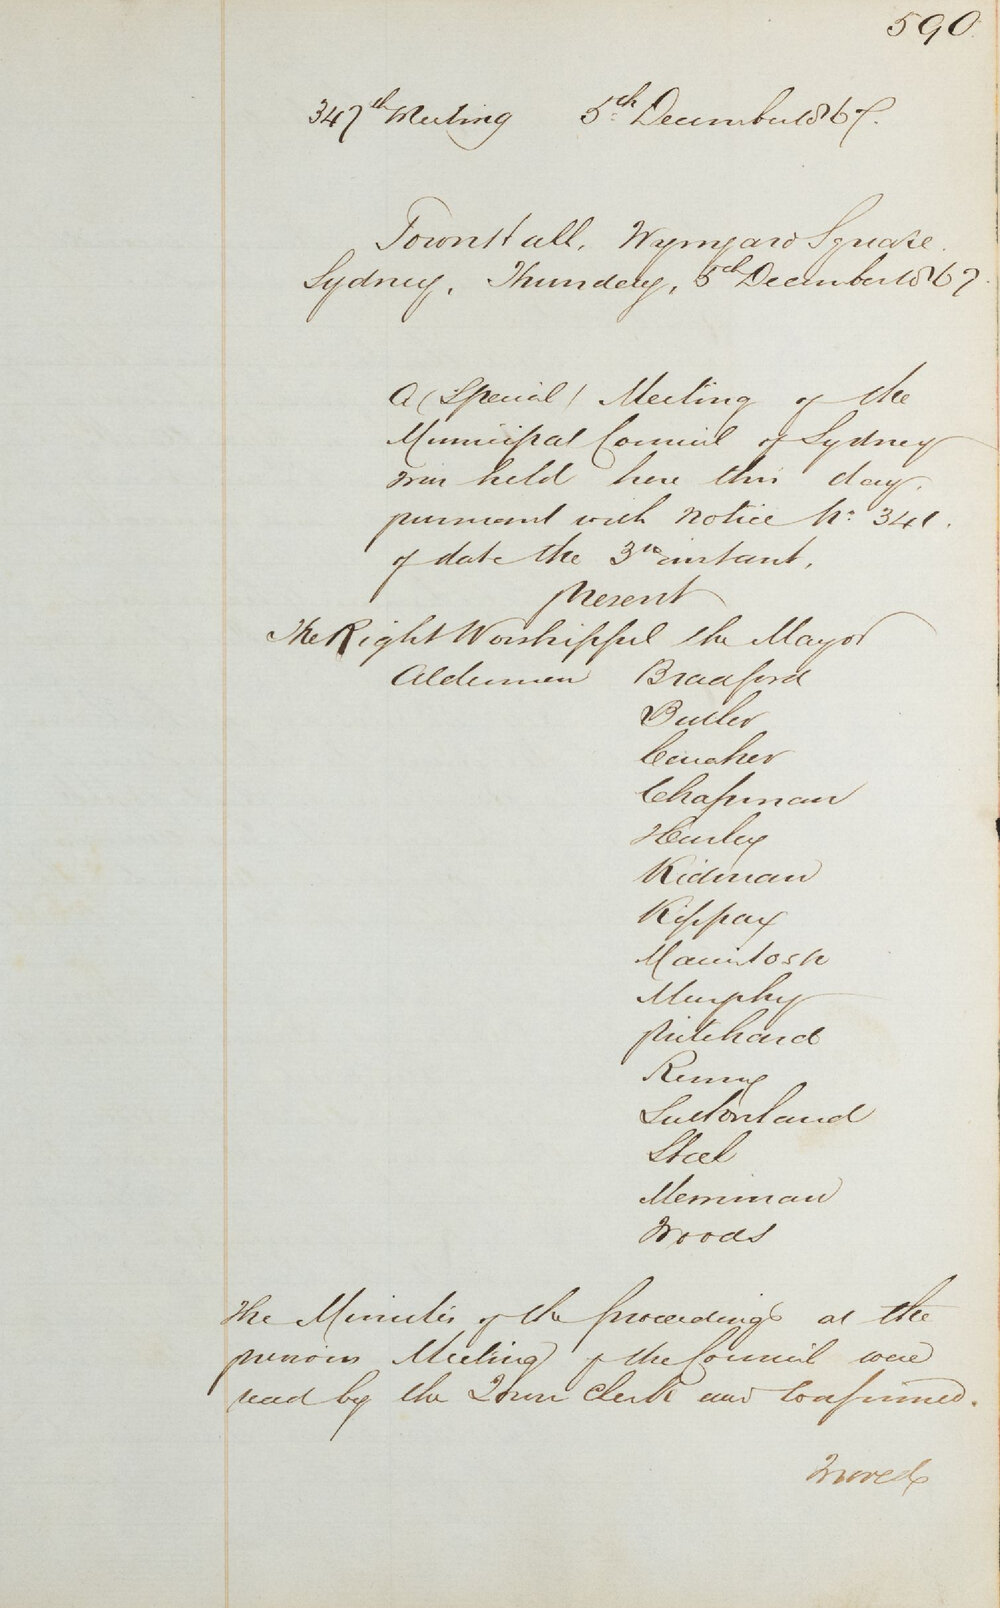 590
347th Meeting 5th December 1867.
Town Hall, Wynyard Square.
Sydney, Thursday, 5th December 1867
A (Special) Meeting of the
Municipal Council of Sydney
was held here this day.
pursuant with Notice No: 341.
of date the 3rd instant.
Present
The Right Worshipful the Mayor
Aldermen Bradford
Butler
Caraher
Chapman
Hurley
Kidman
Kippax
Macintosh
Murphy
Pritchard
Renny
Sutherland
Steel
Merriman
Woods
The Minutes of the proceedings at the
previous Meeting of the Council were
read by the Town Clerk and Confirmed.
Moved